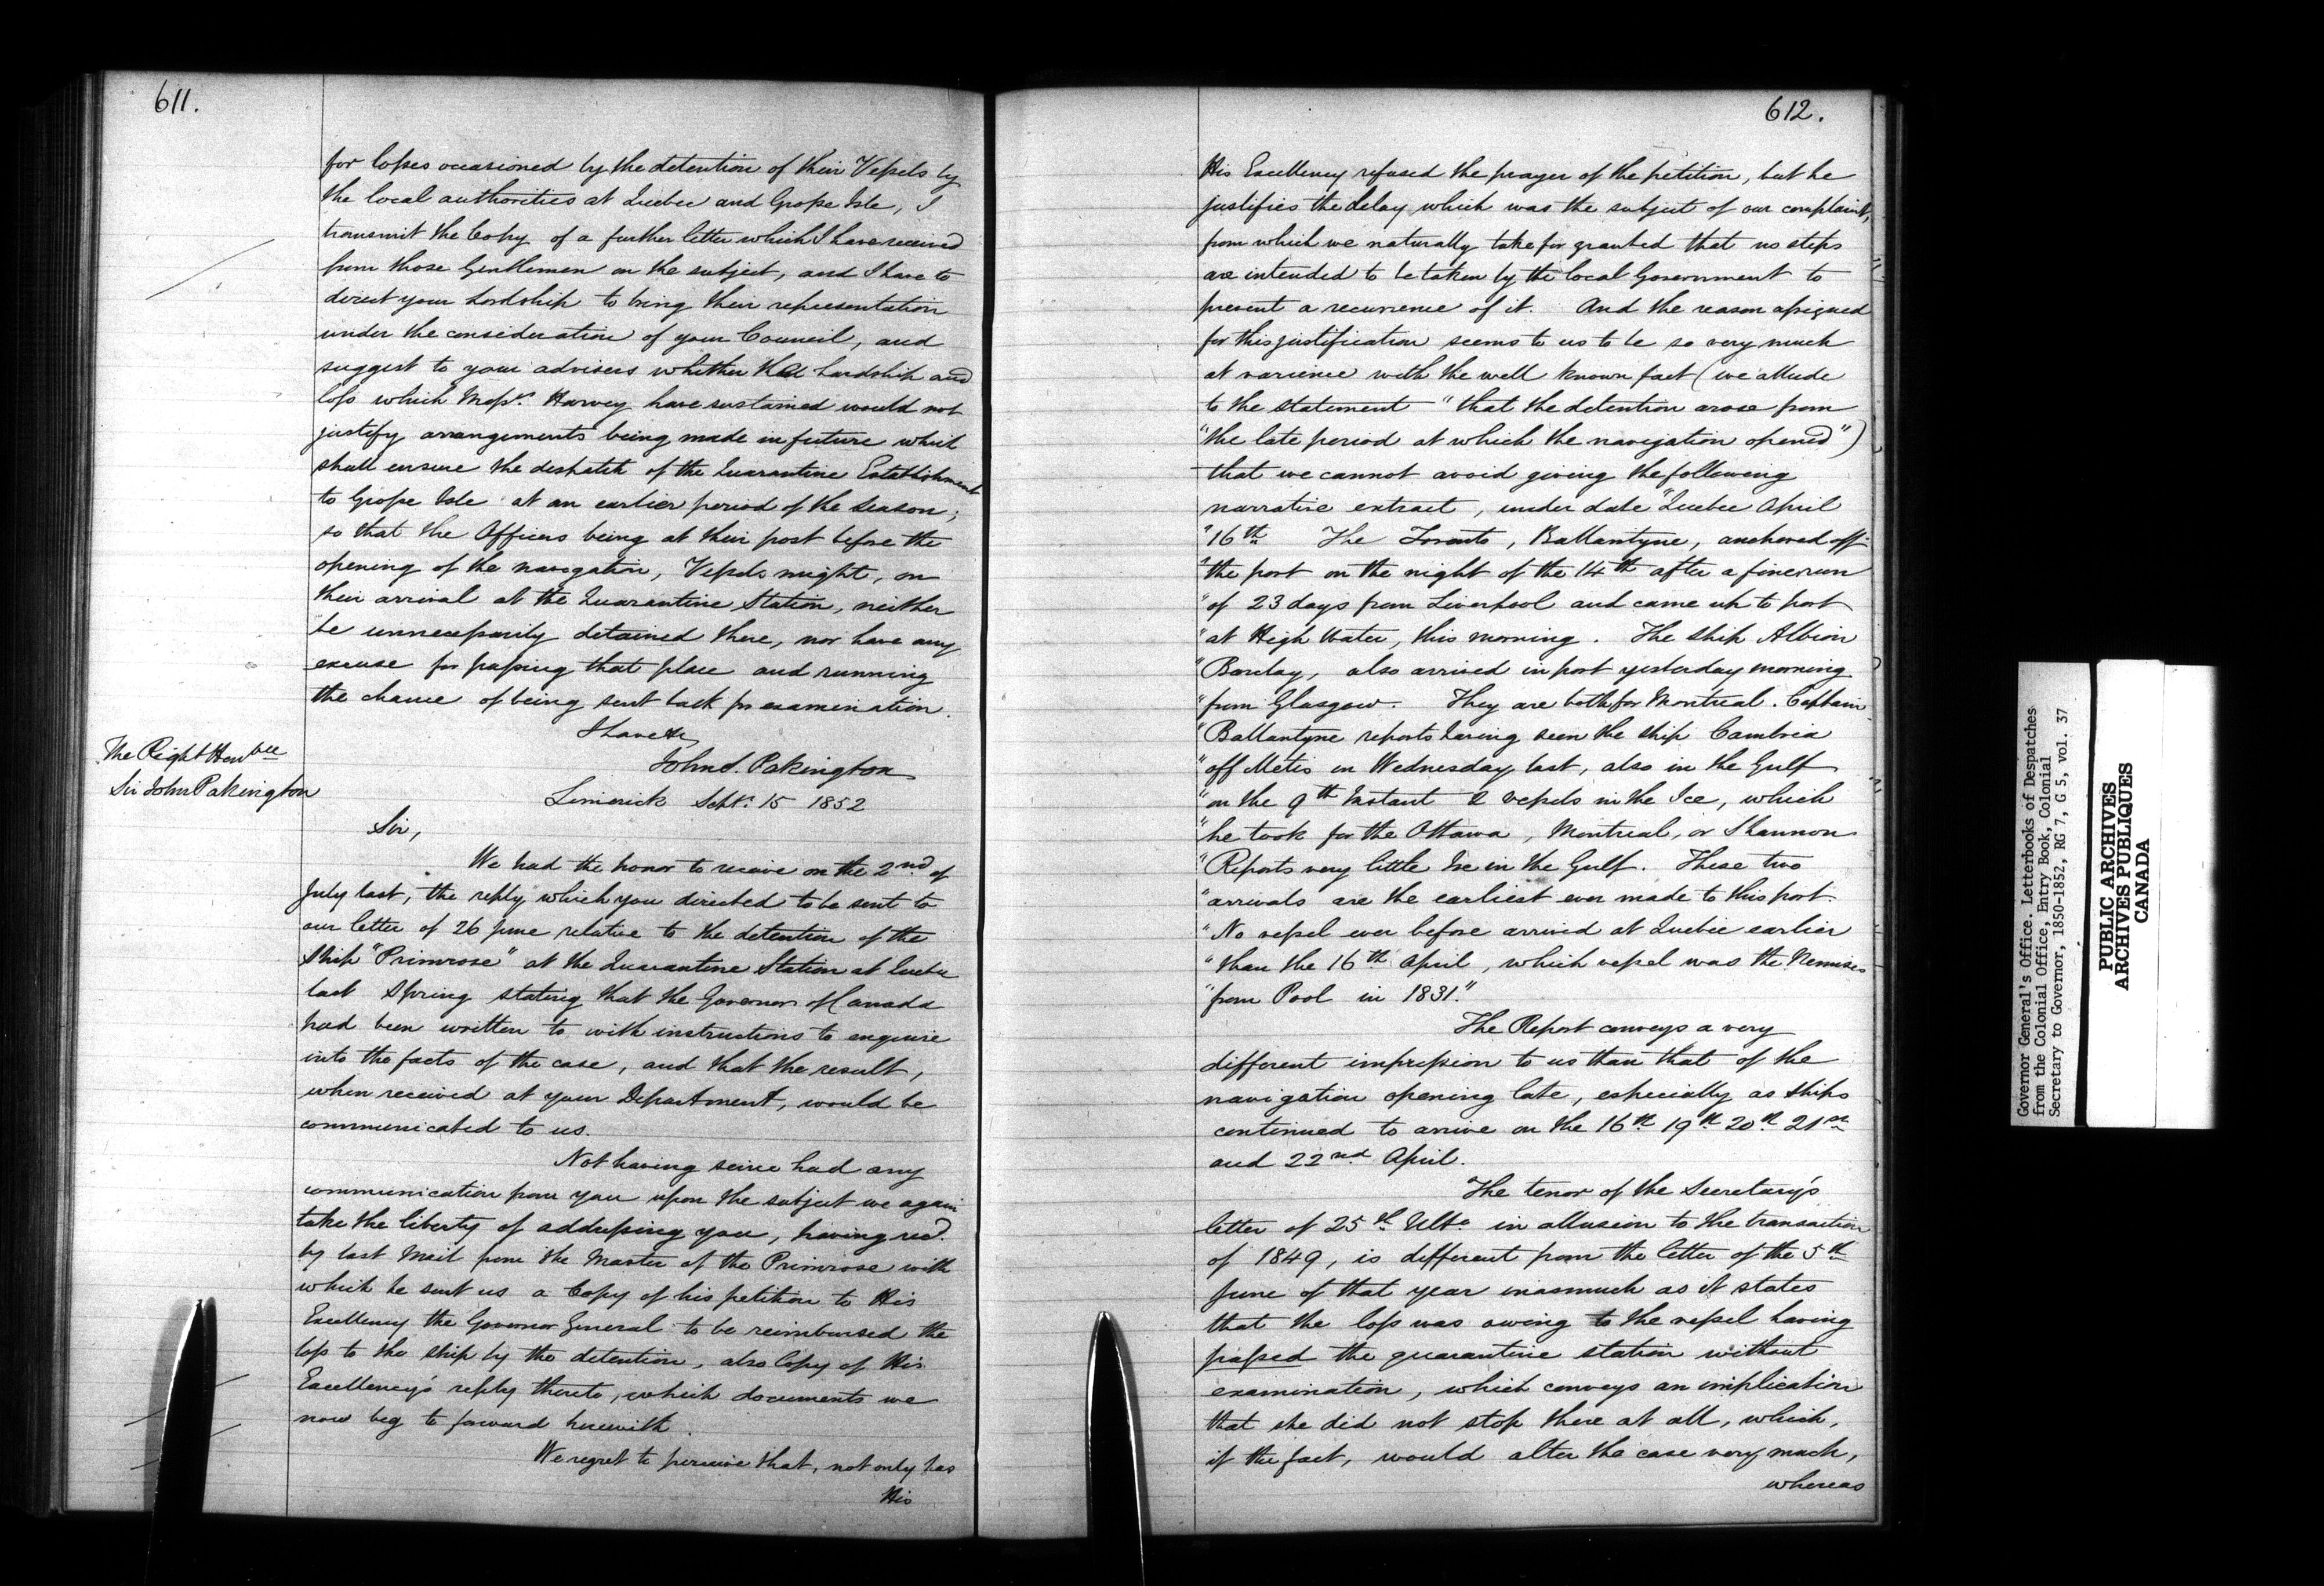 611.
for losses occasioned by the detention of their Vessels by
the local authorities at Quebec and Grosse Isle, I
transmit the Copy of a further letter which I have received
from those Gentlemen on the subject, and I have to
direct your Lordship to bring their representation
under the consideration of your Council, and
suggest to your advisers whether the hardship and
loss which Messrs. Harvey have sustained would not
justify arrangements being made in future which
shall ensure the despatch of the Quarantine Establishment
to Grosse Isle at an earlier period of the season;
so that the Officers being at their post before the
opening of the navigation, Vessels might, on
their arrival at the Quarantine Station, neither
be unnecessarily detained there, nor have any
excuse for passing that place and running
the chance of being sent back for examination.
I have &c
John S. Pakington
The Right Honble
Sir John Pakington
Limerick Septr. 15 1852
Sir,
We had the honor to receive on the 2nd of
July last, the reply which you directed to be sent to
our letter of 26 June relative to the detention of the
Ship "Primrose" at the Quarantine Station at Quebec
last Spring stating that the Governor of Canada
had been written to with instructions to enquire
into the facts of the case, and that the result,
when received at your Department, would be
communicated to us.
Not having since had any
communication from you upon the subject we again
take the liberty of addressing you, having recd.
by last Mail from the Master of the Primrose with
which he sent us a Copy of his petition to His
Excellency the Governor General to be reimbursed the
loss to the ship by the detention, also Copy of His
Excellency's reply thereto, which documents we
now beg to forward herewith.
We regret to perceive that, not only has
His
612.
His Excellency refused the prayer of the petition, but he
justifies the delay which was the subject of our complaint,
from which we naturally take for granted that no steps
are intended to be taken by the local Government to
prevent a recurrence of it. And the reason assigned
for this justification seems to us to be so very much
at varience with the well known fact (we allude
to the statement "that the detention arose from
"the late period at which the navigation opened")
that we cannot avoid giving the following
narrative extract, under date "Quebec April
"16th The Toronto, Ballantyne, anchored off
"the port on the night of the 14th after a fine run
"of 23 days from Liverpool and came up to port
"at High Water, this morning. The Ship Albion
"Barclay, also arrived in port yesterday morning
"from Glasgow. They are both for Montreal. Captain
"Ballantyne reports having seen the ship Cambria
"off Metis on Wednesday last, also in the Gulf
"on the 9th Instant 2 vessels in the Ice, which
"he took for the Ottawa, Montreal, or Shannon
"Reports very little Ice in the Gulf. These two
"arrivals are the earliest ever made to this port.
"No vessel ever before arrived at Quebec earlier
"than the 16th April, which vessel was the
"from Pool in 1831."
The Report conveys a very
different impression to us than that of the
navigation opening late, especially as ships
continued to arrive on the 16th 19th 20th 21st
and 22nd April.
The tenor of the Secretary's
letter of 25th Ulto. in allusion to the transaction
of 1849, is different from the letter of the 5th
June of that year inasmuch as it states
that the loss was owing to the vessel having
passed the quarantine station without
examination, which conveys an implication
that she did not stop there at all, which,
if the fact, would alter the case very much,
whereas
Governor General's Office. Letterbooks of Despatches
from the Colonial Office, Entry Book, Colonial
Secretary to Governor, 1850-1852, RG 7, G 5, vol. 37
PUBLIC ARCHIVES
ARCHIVES PUBLIQUES
CANADA